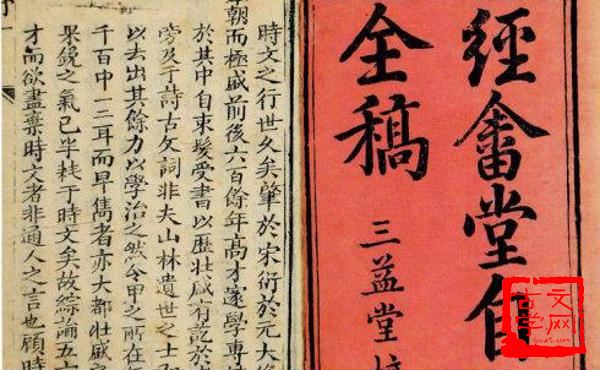 經畬堂自
全稿
三益堂
時文之行世久矣肇於宋衍於元大
朝而極盛前後六百餘年高才邃學專
於其中自束髮受書以歷壯盛有訖於
旁及于詩古文詞非夫山林遺世之士
以去出其餘力以學治之然公甲之所在
千百中一二耳而早雋者亦大都壯盛
果銳之氣已半耗于時文矣故綜論五
才而欲盡棄時文者非通人之言也顧時
古文学网
gwx5.com